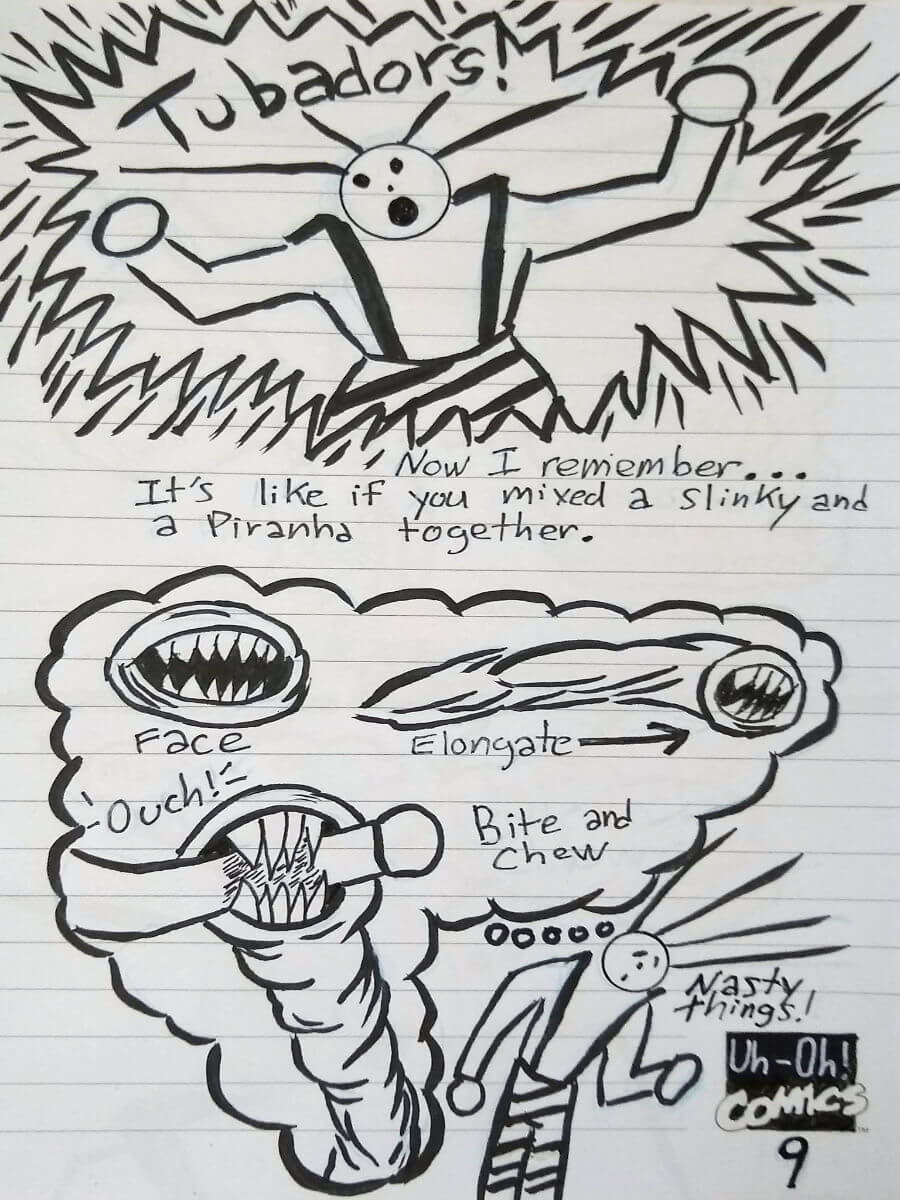 Tubadors!
Now I remember...
It's like if you mixed a slinky and
a Piranha together.
Face
Elongate
Ouch!
Bite and
chew
Nasty
things!
Uh-Oh!
COMICS
9